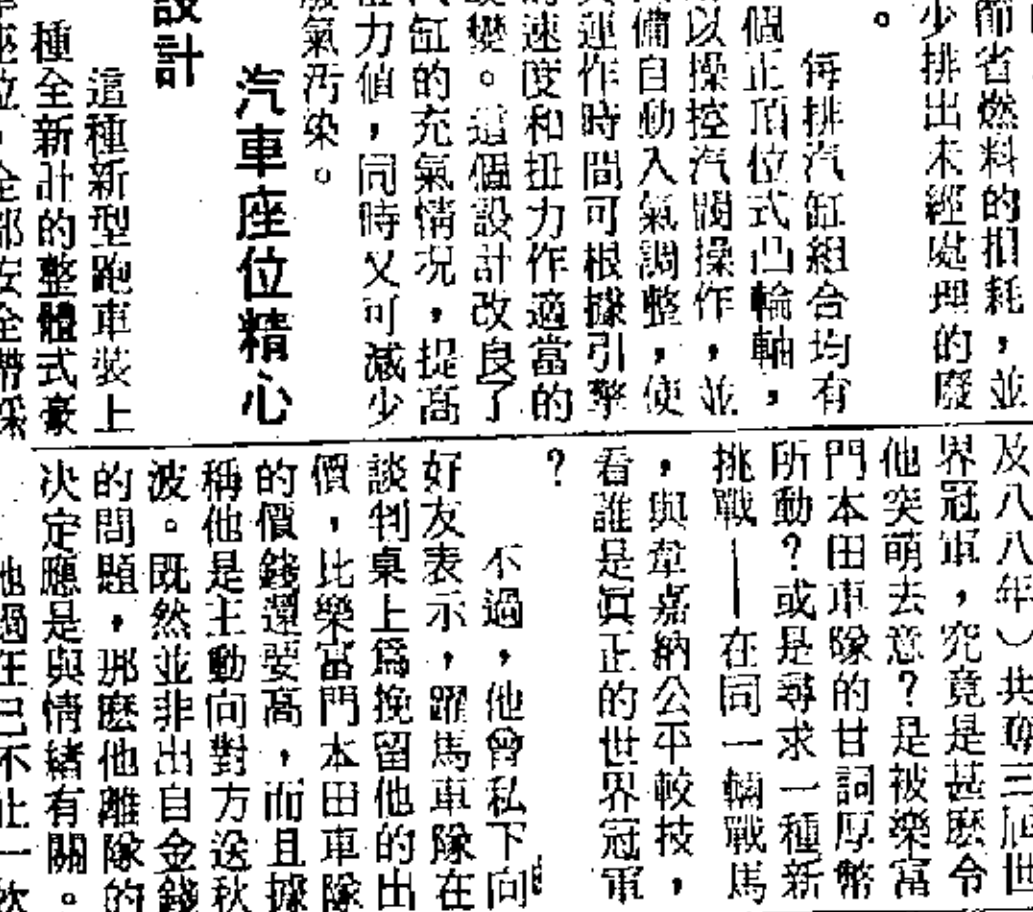 節省燃料的損耗，並
少排出未經處理的廢
。
每排汽缸組合均有
個正頂位式凸輪軸，
以操控汽閥操作，並
備自動入氣調整，使
運作時間可根據引擎
速度和扭力作適當的
變。這個設計改良了
缸的充氣情況，提高
力值，同時又可減少
氣污染。
汽車座位精心
設計
這種新型跑車裝上
種全新計的整體式豪
座位，全部安全帶
及八八年）共奪三屆世
界冠軍，究竟是甚麽令
他突萌去意？是被樂富
門本田車隊的甘詞厚幣
所動？或是尋求一種新
挑戰——在同一輛戰馬
，與韋嘉納公平較技，
看誰是眞正的世界冠軍
？
不過，他曾私下向
好友表示，躍馬車隊在
談判桌上爲挽留他的出
價，比樂富門本田車隊
的價錢還要高，而且據
稱他是主動向對方送秋
波。既然並非出自金錢
的問題，那麽他離隊的
决定應是與情緒有關。
他過往已不止一次